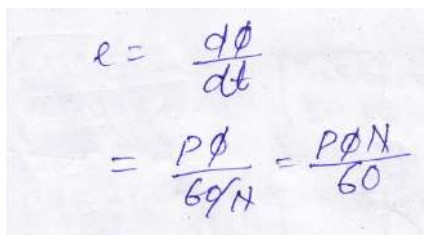 e = dϕ/dt
= Pϕ/60/N = PϕN/60